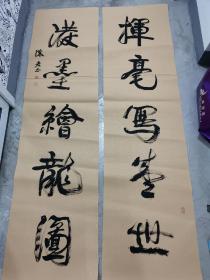 揮毫寫盛世
潑墨繪龍圖